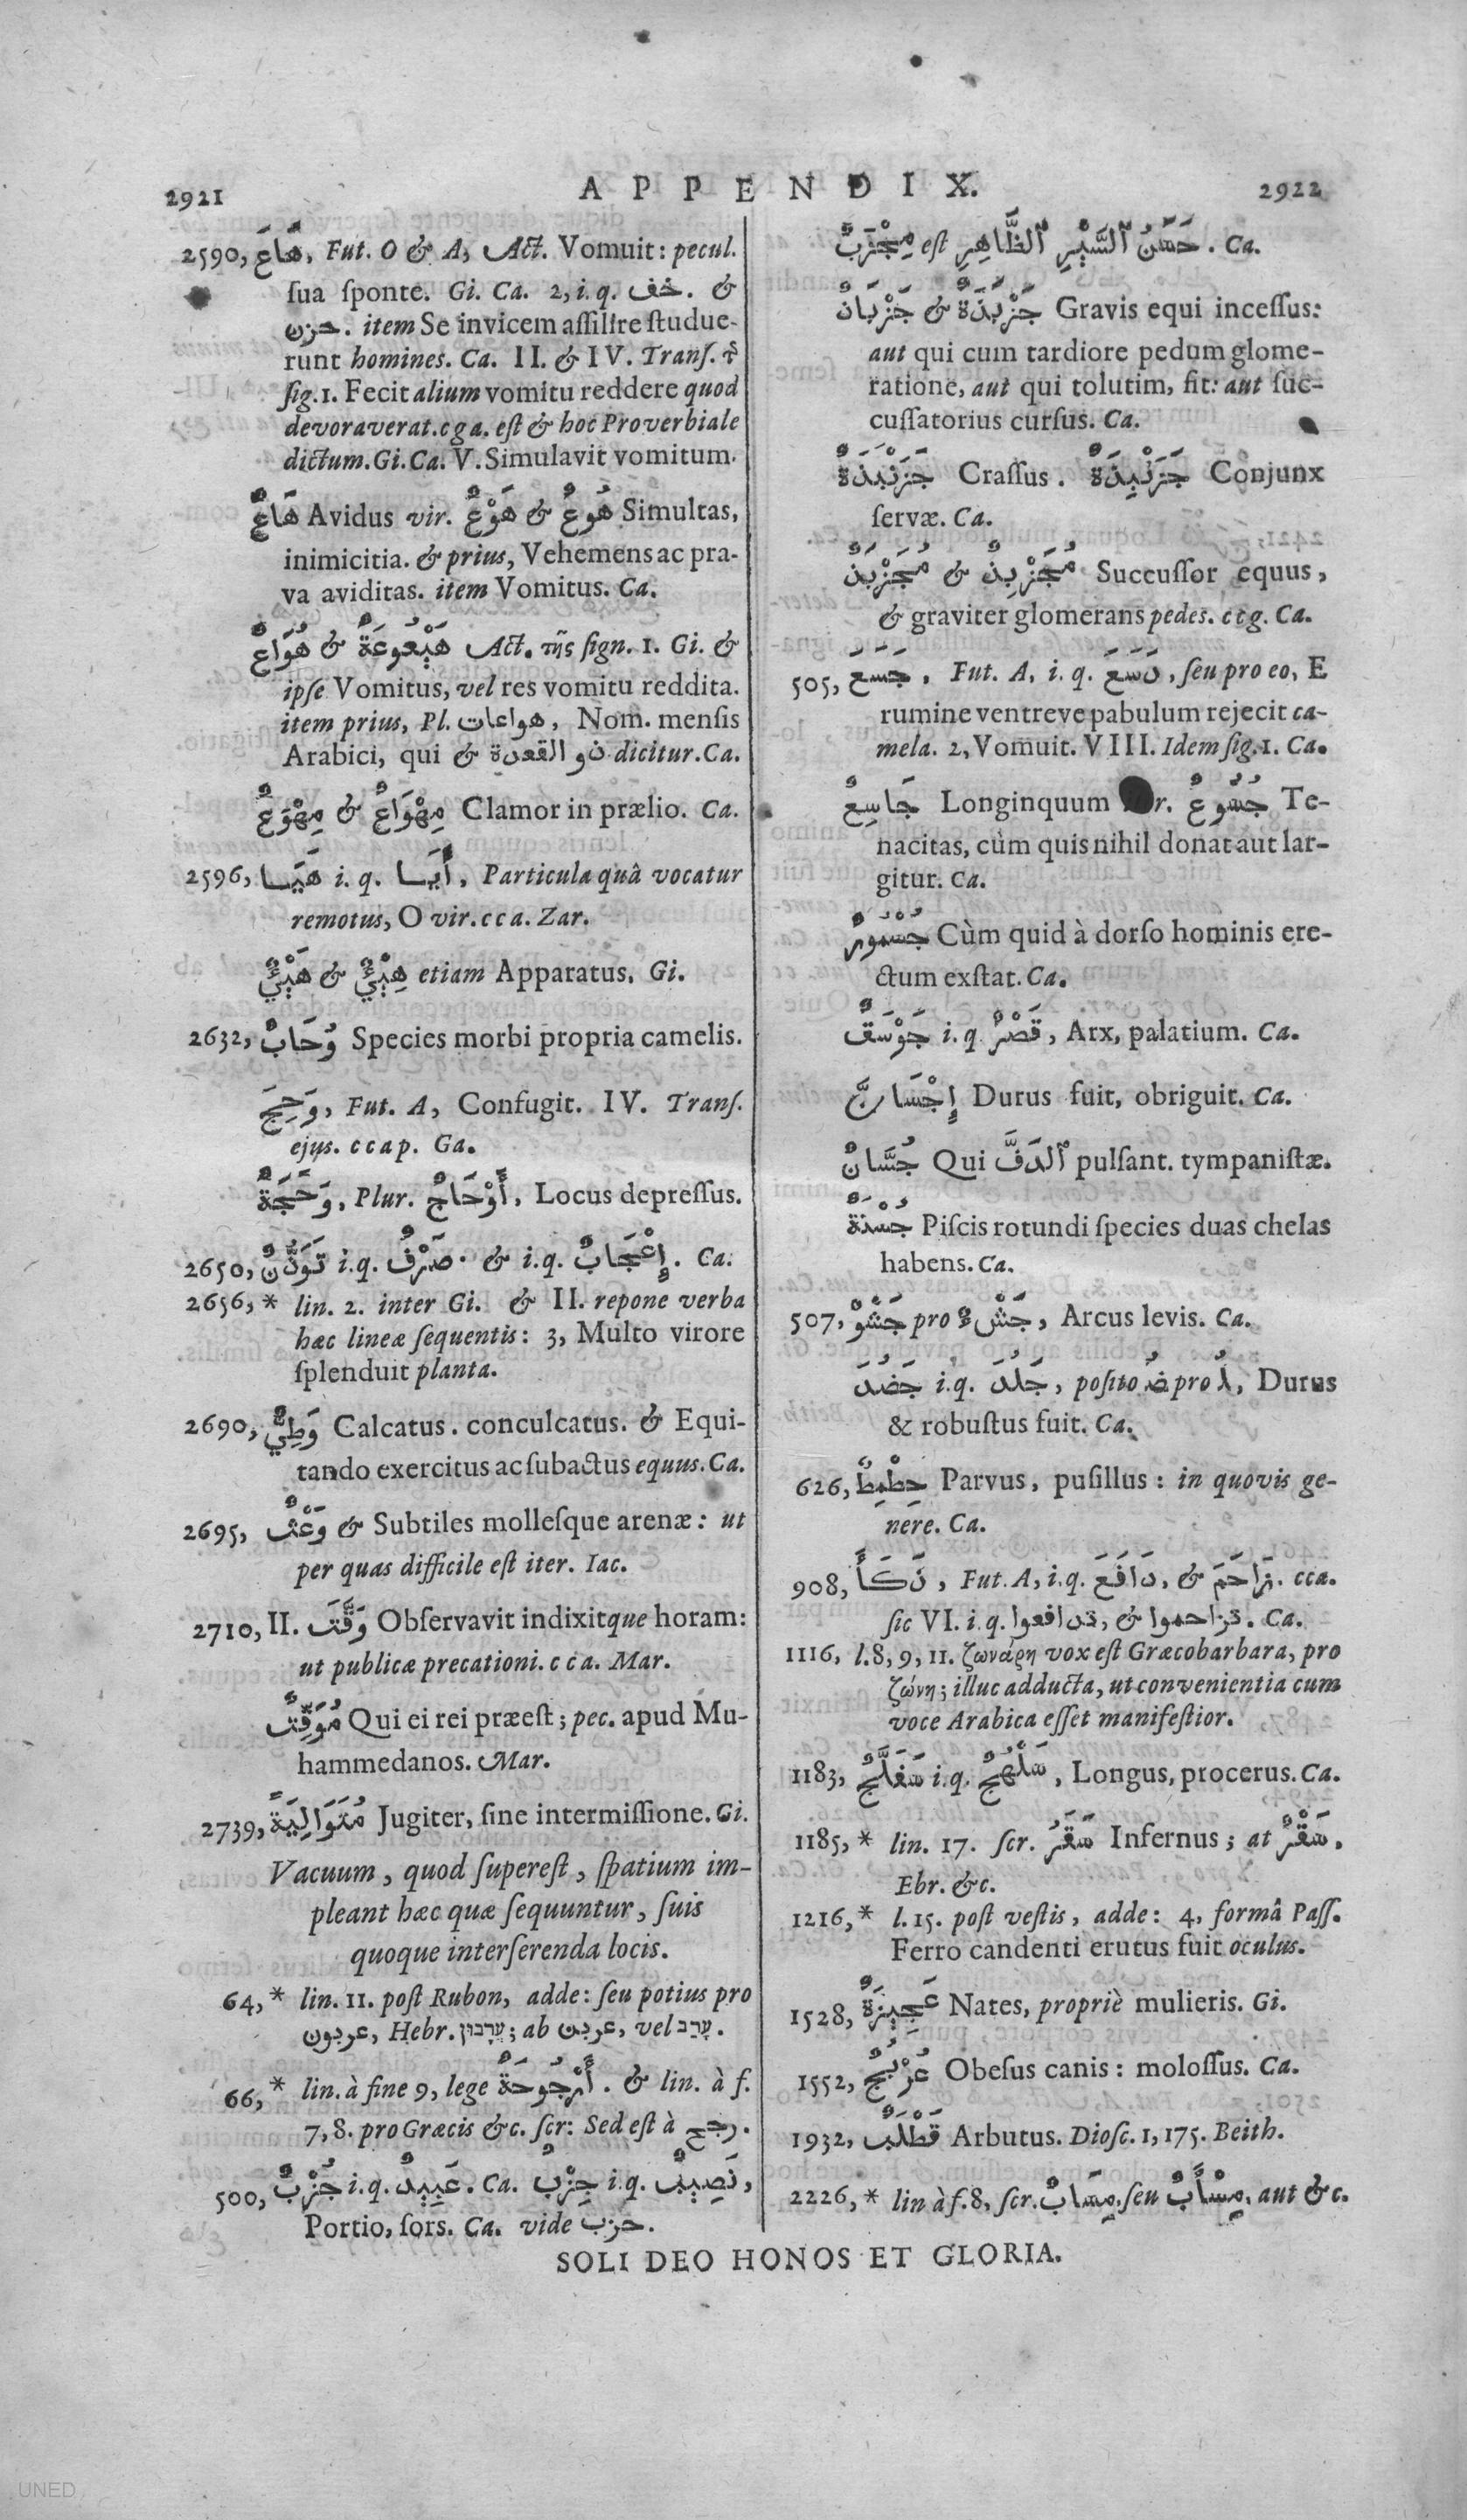 2921
APPENDIX.
2922
2590, هَاعَ, Fut. O & A, Act. Vomuit: pecul.
sua sponte. Gi. Ca. 2, i.q. خف. &
حزن. item Se invicem assilire studue-
runt homines. Ca. II. & IV. Trans.
sig. 1. Fecit alium vomitu reddere quod
devoraverat. cga. est & hoc Proverbiale
dictum. Gi. Ca. V. Simulavit vomitum.
هَاعٌ Avidus vir. هَوْعٌ & هُوعٌ Simultas,
inimicitia. & prius, Vehemens ac pra-
va aviditas. item Vomitus. Ca.
هُوَاعٌ & هَيْعُوعَةٌ Act. τῆς sign. 1. Gi. &
ipse Vomitus, vel res vomitu reddita.
item prius, Pl. هواعات, Nom. mensis
Arabici, qui & ذو القعدة dicitur. Ca.
مِهْوَعٌ & مِهْوَاعٌ Clamor in prælio. Ca.
2596, هَيَا i.q. أَيَا, Particula quâ vocatur
remotus, O vir. cca. Zar.
هَيْئٌ & هِيْئٌ etiam Apparatus. Gi.
2632, وُحَابٌ Species morbi propria camelis.
وَحِجَ, Fut. A, Confugit. IV. Trans.
ejus. ccap. Ga.
وَحَجَةٌ, Plur. أَوْحَاجٌ, Locus depressus.
2650, تَوَدُّنٌ i.q. صَرْفٌ. & i.q. إِعْجَابٌ. Ca.
2656, * lin. 2. inter Gi. & II. repone verba
hæc lineæ sequentis: 3, Multo virore
splenduit planta.
2690, وَطِيٌّ Calcatus. conculcatus. & Equi-
tando exercitus ac subactus equus. Ca.
2695, وَعْثٌ & Subtiles mollesque arenæ: ut
per quas difficile est iter. Iac.
2710, II. وَقَّتَ Observavit indixitque horam:
ut publicæ precationi. cca. Mar.
مُوَقِّتٌ Qui ei rei præest; pec. apud Mu-
hammedanos. Mar.
2739, مُتَوَالِيَةً Jugiter, sine intermissione. Gi.
Vacuum, quod superest, spatium im-
pleant hæc quæ sequuntur, suis
quoque interserenda locis.
64, * lin. 11. post Rubon, adde: seu potius pro
عربون, Hebr. עֲרָבוֹן; ab عربن, vel עָרַב.
66, * lin. à fine 9, lege أُرْجُوحَةٌ. & lin. à f.
7, 8. pro Græcis &c. scr: Sed est à رجح.
500, جُزْبٌ i.q. عَبِيدٌ. Ca. جِزْبٌ i.q. نَصِيبٌ,
Portio, sors. Ca. vide حزب.
مِجْزَبٌ est حَسَنُ ٱلسَّبْرِ ٱلظَّاهِرِ. Ca.
جَزْبَانٌ & جَزْبَذَةٌ Gravis equi incessus:
aut qui cum tardiore pedum glome-
ratione, aut qui tolutim, fit: aut suc-
cussatorius cursus. Ca.
جَزَنْبَذَةٌ Crassus. جَزَنْبِذَةٌ Conjunx
servæ. Ca.
مُجَزْبَذٌ & مُجَزْبِذٌ Succussor equus,
& graviter glomerans pedes. ccg. Ca.
505, جَسَعَ, Fut. A, i.q. دَسَعَ, seu pro eo, E
rumine ventreve pabulum rejecit ca-
mela. 2, Vomuit. VIII. Idem sig. 1. Ca.
جَاسِعٌ Longinquum r. جُسُوعٌ Te-
nacitas, cùm quis nihil donat aut lar-
gitur. Ca.
جُسْمُورٌ Cùm quid à dorso hominis ere-
ctum exstat. Ca.
جَوْسَقٌ i.q. قَصْرٌ, Arx, palatium. Ca.
إِجْسَانَّ Durus fuit, obriguit. Ca.
جُسَّانٌ Qui ٱلدَفَّ pulsant. tympanistæ.
جُسْنَةٌ Piscis rotundi species duas chelas
habens. Ca.
507, جَشْوٌ pro جَشْءٌ, Arcus levis. Ca.
جَضُدَ i.q. جَلُدَ, posito ضُ pro لُ, Durus
& robustus fuit. Ca.
626, حِطْمِطٌ Parvus, pusillus: in quovis ge-
nere. Ca.
908, دَكَأَ, Fut. A, i.q. دَافَعَ, & زَاحَمَ. cca.
sic VI. i.q. تدافعوا, & تزاحموا. Ca.
1116, l. 8, 9, 11. ζωνάρη vox est Græcobarbara, pro
ζώνη; illuc adducta, ut convenientia cum
voce Arabica esset manifestior.
1183, سَغَلَّجٌ i.q. سَلْهَجٌ, Longus, procerus. Ca.
1185, * lin. 17. scr. سَقَرُ Infernus; at سَقْرٌ,
Ebr. &c.
1216, * l. 15. post vestis, adde: 4, formâ Pass.
Ferro candenti erutus fuit oculus.
1528, عَجِيزَةٌ Nates, propriè mulieris. Gi.
1552, عُرْبُجٌ Obesus canis: molossus. Ca.
1932, قَطْلَبٌ Arbutus. Diosc. 1, 175. Beith.
2226, * lin à f. 8, scr. مِسَابٌ, seu مِسْأَبٌ, aut &c.
SOLI DEO HONOS ET GLORIA.
UNED